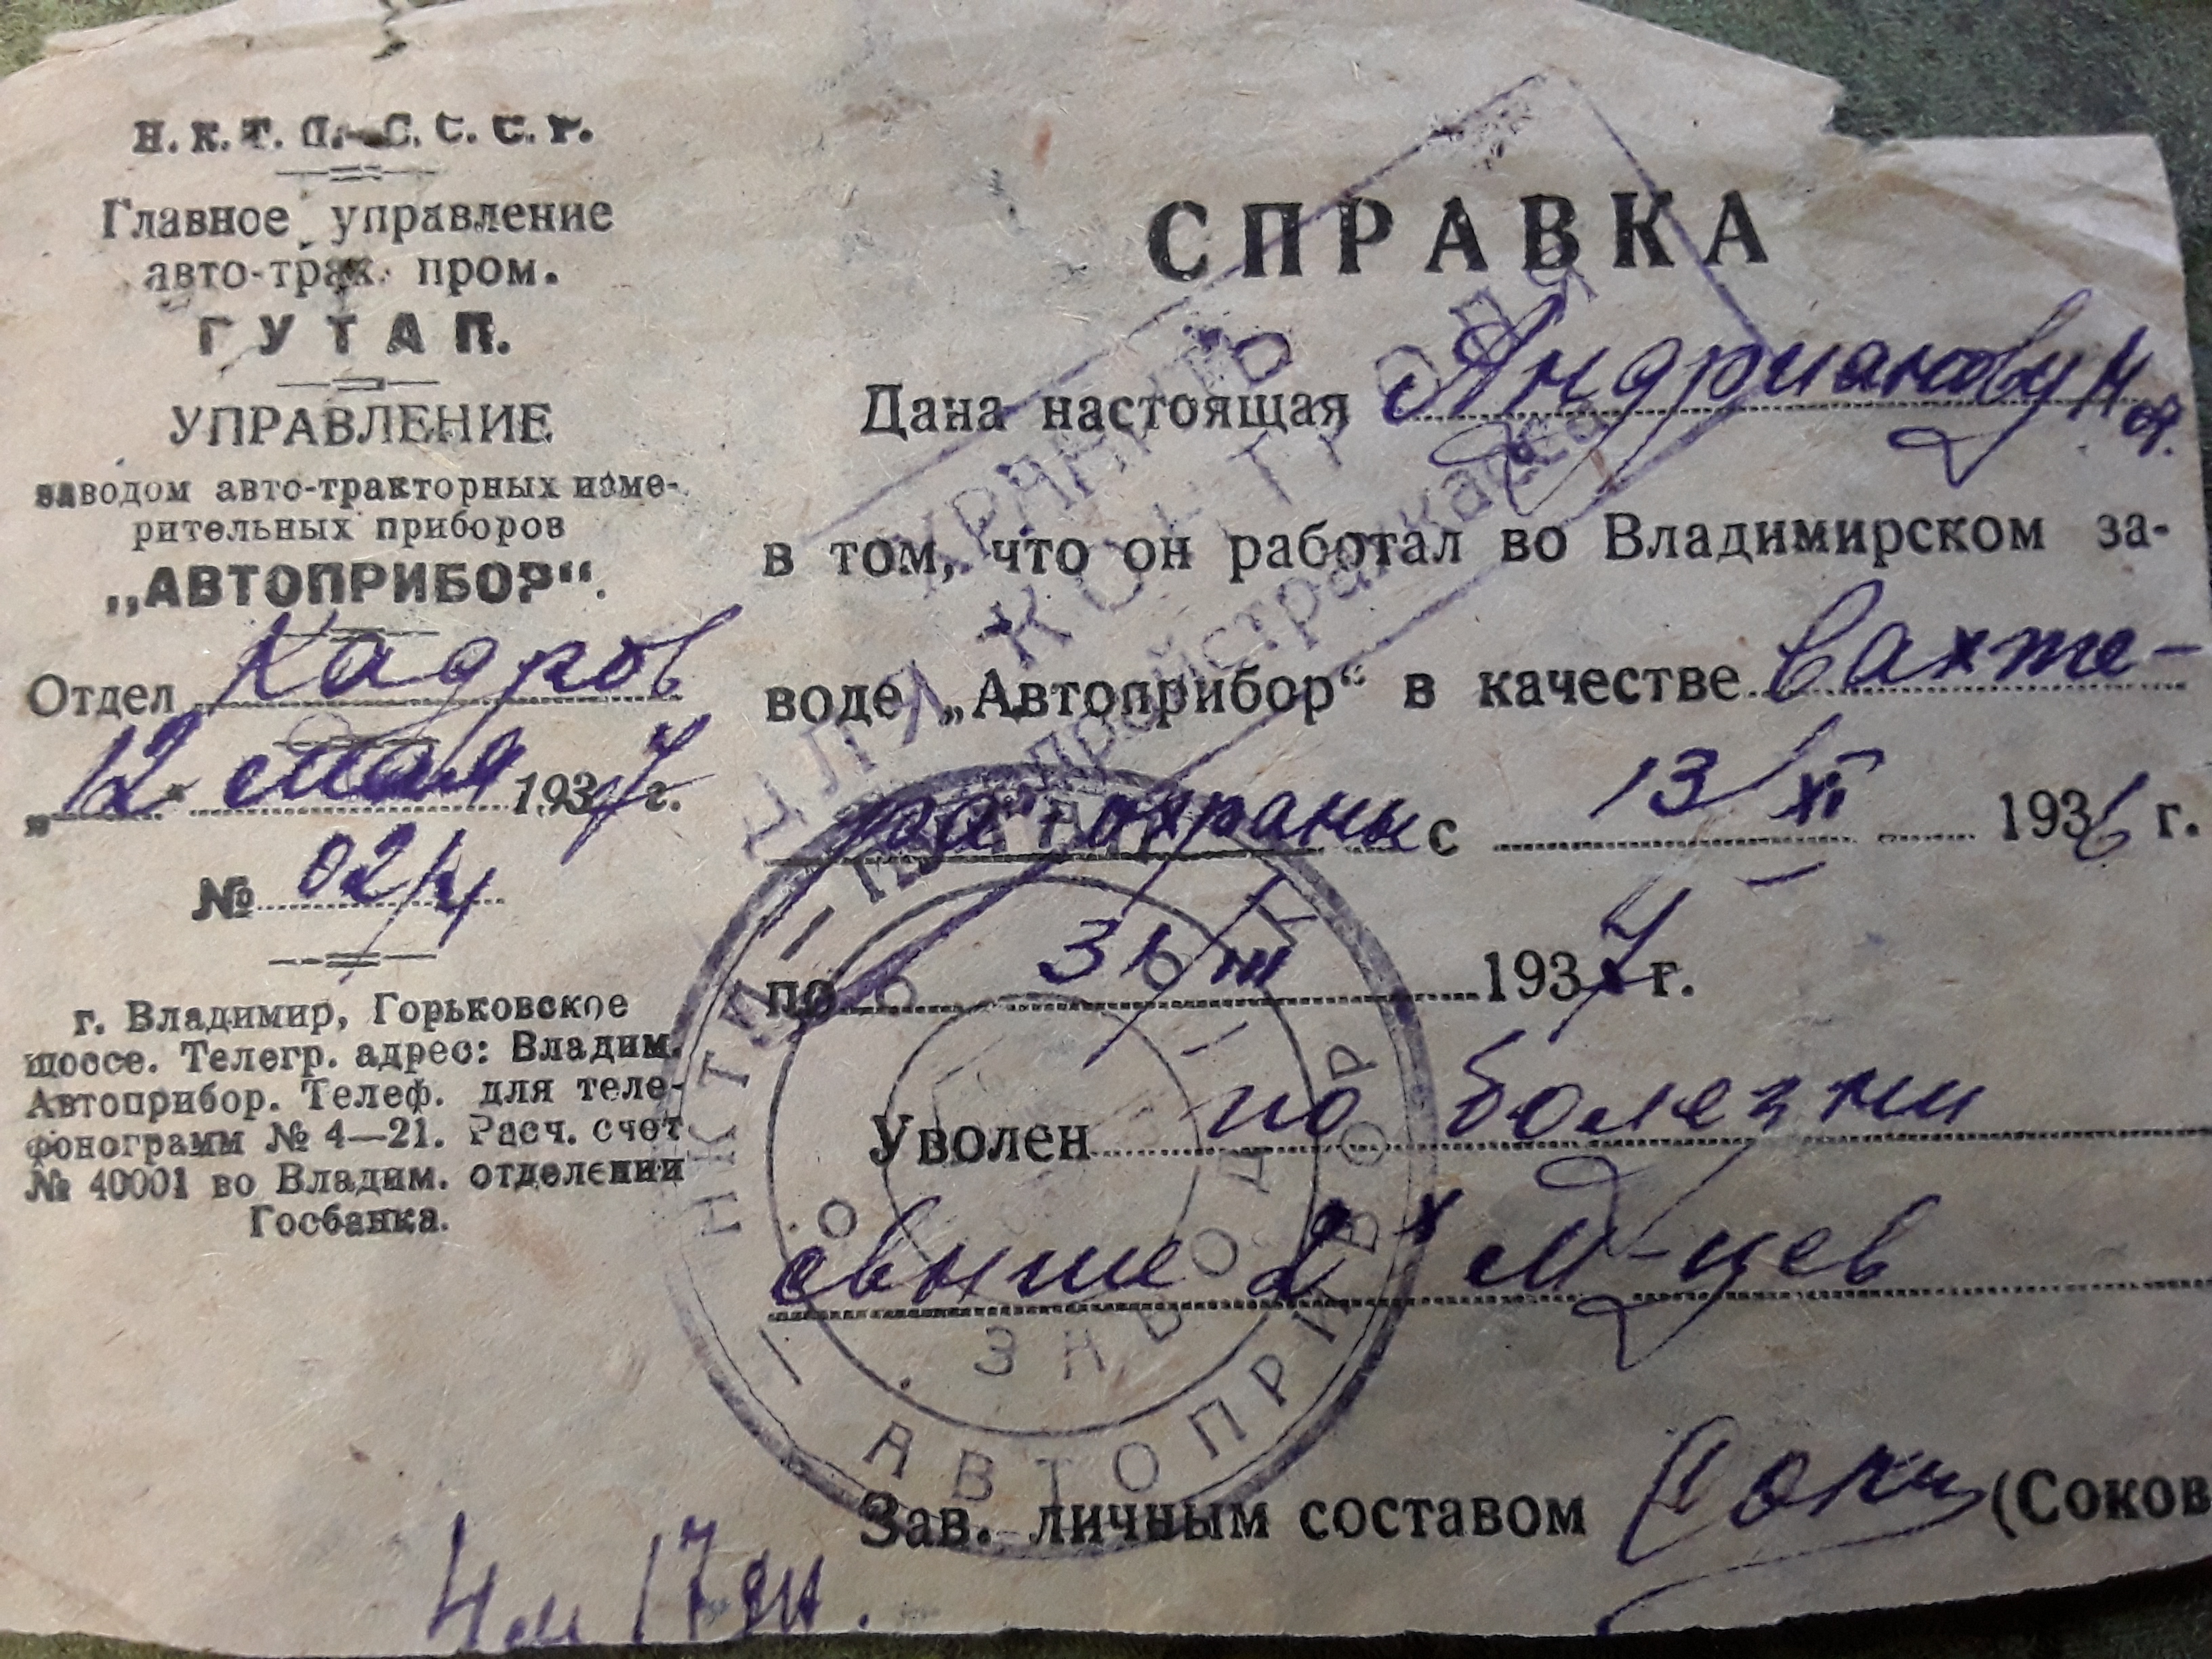 Н.К.Т.П. С.С.С.Р.
Главное управление
авто-трак. пром.
ГУТАП.
УПРАВЛЕНИЕ
заводом авто-тракторных изме-
рительных приборов
„АВТОПРИБОР“.
Отдел Кадров
„12“ мая 1937 г.
№ 02/4
г. Владимир, Горьковское
шоссе. Телегр. адрес: Владим.
Автоприбор. Телеф. для теле-
фонограмм № 4—21. Расч. счет
№ 40001 во Владим. отделении
Госбанка.
СПРАВКА
Дана настоящая Андрианову
в том, что он работал во Владимирском за-
воде „Автоприбор“ в качестве вахте-
ра охраны с 13/XI 1936 г.
по 31/III 1937 г.
Уволен по болезни
свыше 2х м-цев
Зав. личным составом (Соков
4 м 17 дн.
ХРАНИТЬ
ДЛЯ КОНТРОЛЯ
АВТОПРИБОР
ЗАВОД
НКТП